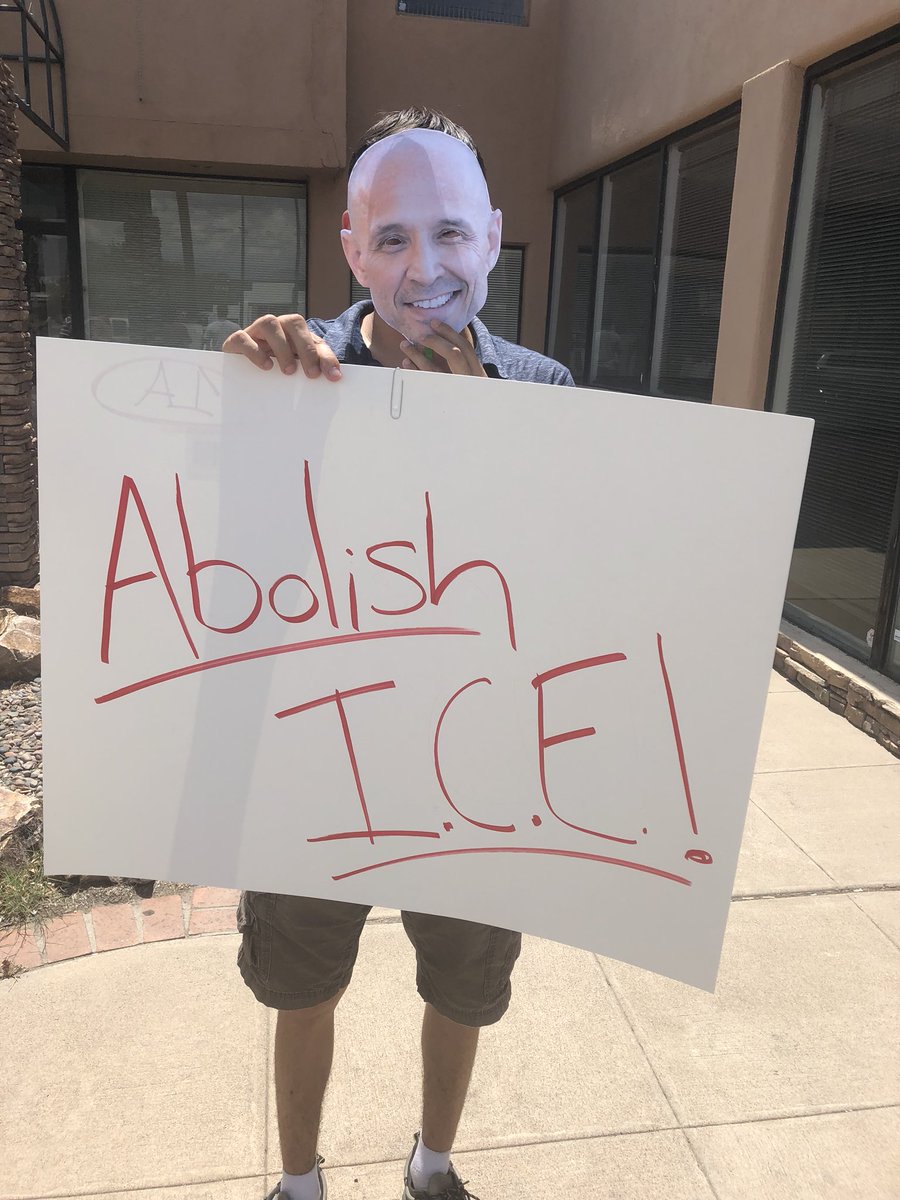 Abolish
I.C.E.!